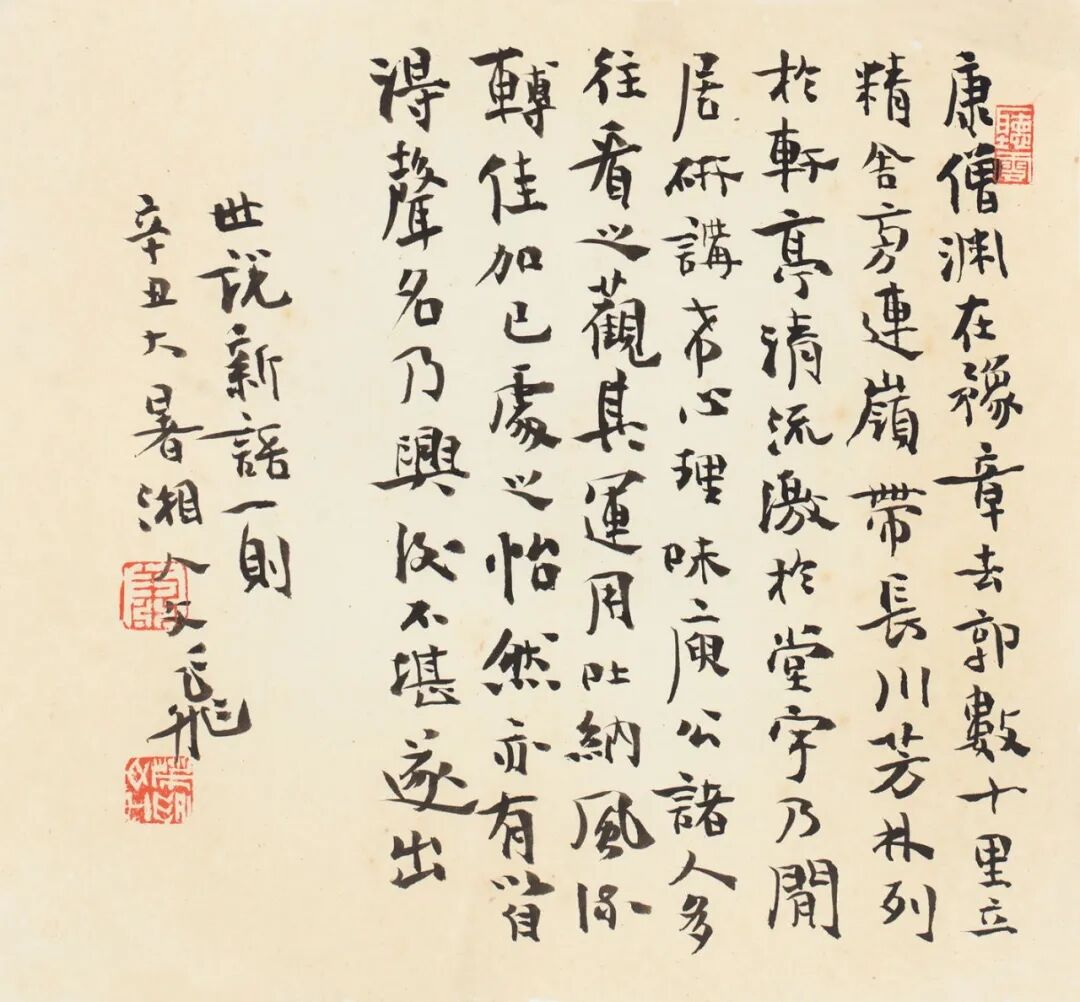 康僧渊在豫章去郭數十里立
精舍旁連嶺帶長川芳林列
於軒亭清流激於堂宇乃閒
居研講希心理味庾公諸人多
往看之觀其運用吐納風流
轉佳加已處之怡然亦有以自
得聲名乃興後不堪遂出
世説新語一則
辛丑大暑湘人